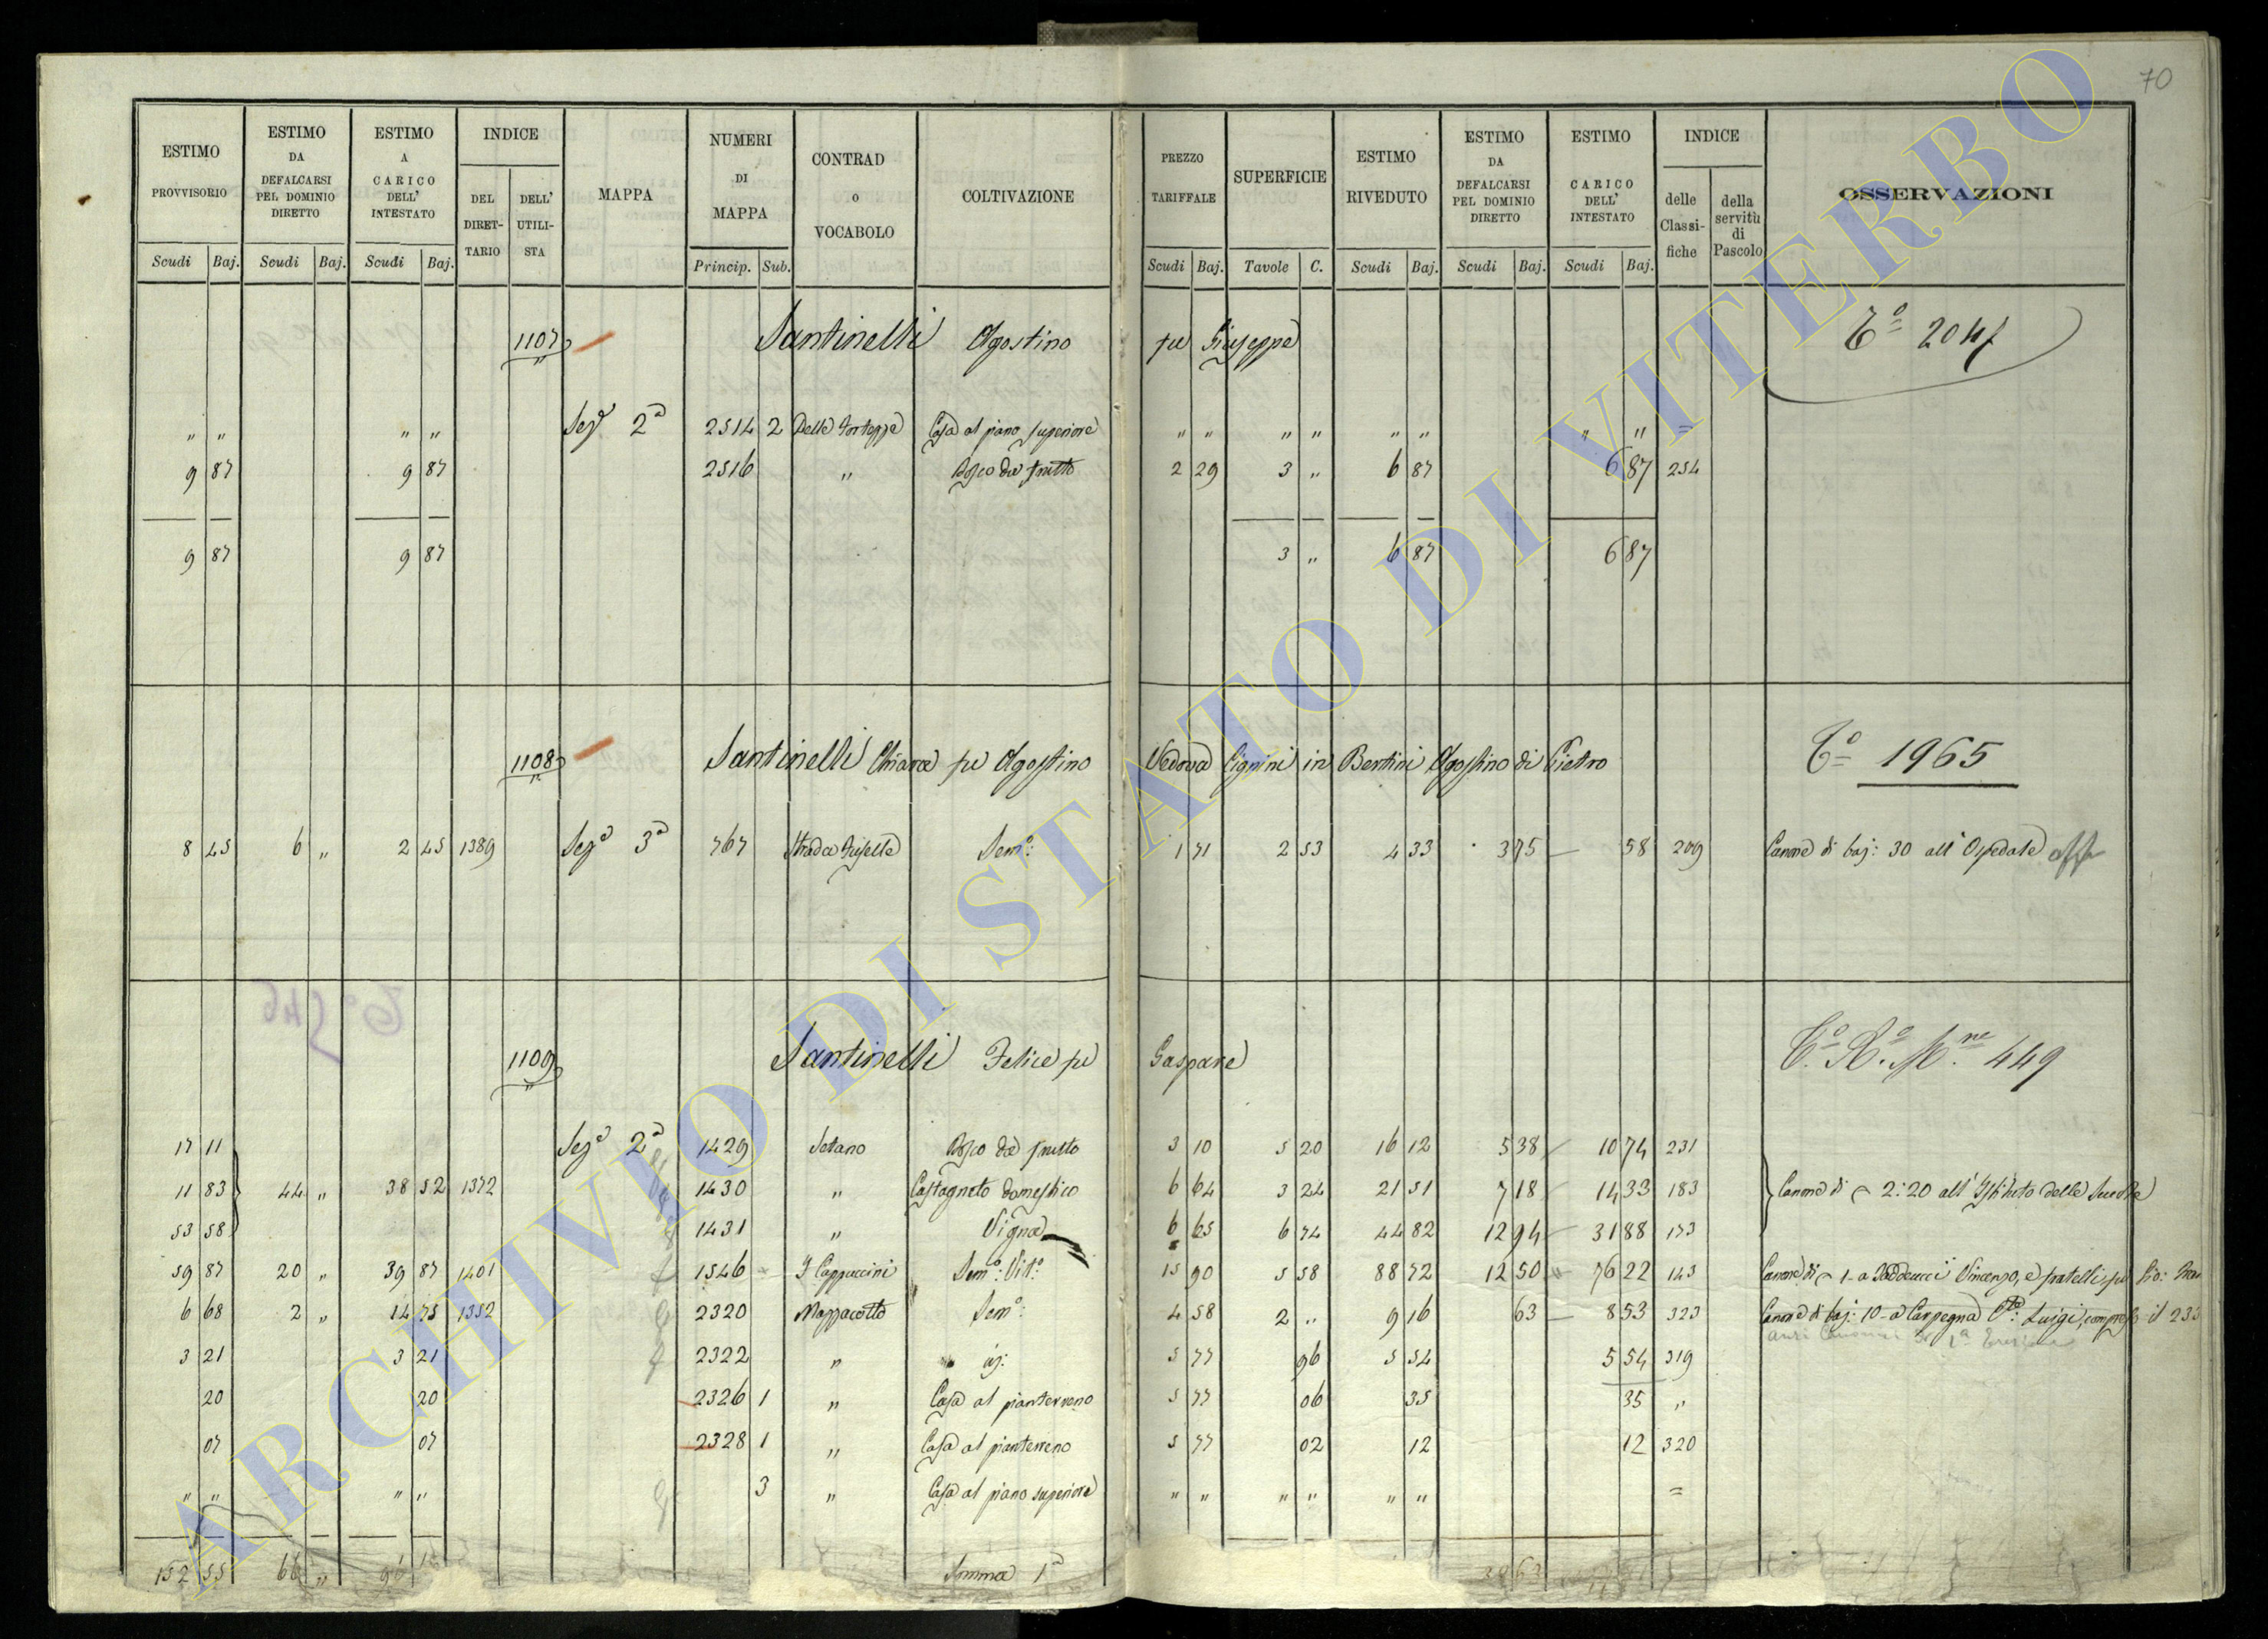 70
ESTIMO PROVVISORIO Scudi Baj.
ESTIMO DA DEFALCARSI PEL DOMINIO DIRETTO Scudi Baj.
ESTIMO A CARICO DELL' INTESTATO Scudi Baj.
INDICE DEL DIRETTARIO DELL' UTILISTA
MAPPA
NUMERI DI MAPPA Princip. Sub.
CONTRAD o VOCABOLO
COLTIVAZIONE
PREZZO TARIFFALE Scudi Baj.
SUPERFICIE Tavole C.
ESTIMO RIVEDUTO Scudi Baj.
ESTIMO DA DEFALCARSI PEL DOMINIO DIRETTO Scudi Baj.
ESTIMO CARICO DELL' INTESTATO Scudi Baj.
INDICE delle Classifiche della servitù di Pascolo
OSSERVAZIONI
1107 Santinelli Agostino fu Giuseppe
" " " " Sezᵉ 2ª 2514 2 Casa al piano superiore " " " " " " " " =
9 87 9 87 2516 " Bosco da frutto 2 29 3 " 6 87 6 87 254
9 87 9 87 3 " 6 87 6 87
1108 Santinelli Chiara fu Agostino Vedova in Bertini Agostino di Pietro Tº 1965
8 45 6 " 2 45 1389 Sezᵉ 3ª 767 Strada Semº: 1 71 2 53 4 33 3 75 58 209 Canone di baj: 30 all'Ospedale
1109 Santinelli Felice fu Gaspare 449
17 11 Sezᵉ 2ª 1429 Setano Bosco da frutto 3 10 5 20 16 12 5 38 10 74 231
11 83 44 " 38 52 1372 1430 " Castagneto domestico 6 64 3 24 21 51 7 18 14 33 183 Canone di 2:20 all'Istituto delle Scuole
53 58 1431 " Vigna 6 65 6 74 44 82 12 94 31 88 173
59 87 20 " 39 87 1401 1546 I Cappuccini Semº: Vitº: 15 90 5 58 88 72 12 50 76 22 145 Canone di 1 a Taddeucci Vincenzo, e fratelli fu
6 68 2 " 14 75 1352 2320 Mazzacotto Semº: 4 58 2 " 9 16 63 8 53 323 Canone di baj: 10 a Carpegna Luigi, compreso il
3 21 3 21 2322 " id: 5 77 96 5 54 5 54 319
20 20 2326 1 " Casa al pianterreno 5 77 06 35 35 "
07 07 2328 1 " Casa al pianterreno 5 77 02 12 12 320
" " " " 3 " Casa al piano superiore " " " " " " =
152 55 66 " 96 Somma 1ª 38 63
ARCHIVIO DI STATO DI VITERBO